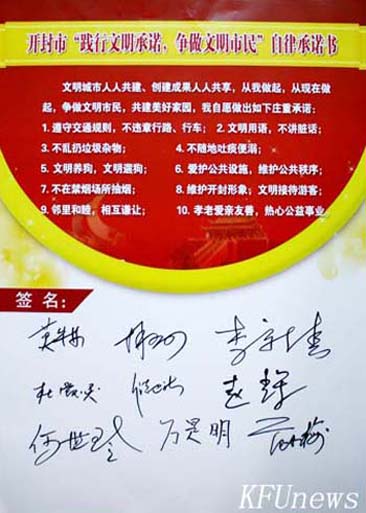 开封市“践行文明承诺，争做文明市民”自律承诺书
文明城市人人共建、创建成果人人共享，从我做起，从现在做
起，争做文明市民，共建美好家园，我自愿做出如下庄重承诺：
1. 遵守交通规则，不违章行路、行车； 2. 文明用语，不讲脏话；
3. 不乱扔垃圾杂物； 4. 不随地吐痰便溺；
5. 文明养狗，文明遛狗； 6. 爱护公共设施，维护公共秩序；
7. 不在禁烟场所抽烟； 8. 维护开封形象；文明接待游客；
9. 邻里和睦，相互谦让； 10. 孝老爱亲友善，热心公益事业。
签名：
赵锋
何世
万昊明
KFUnews